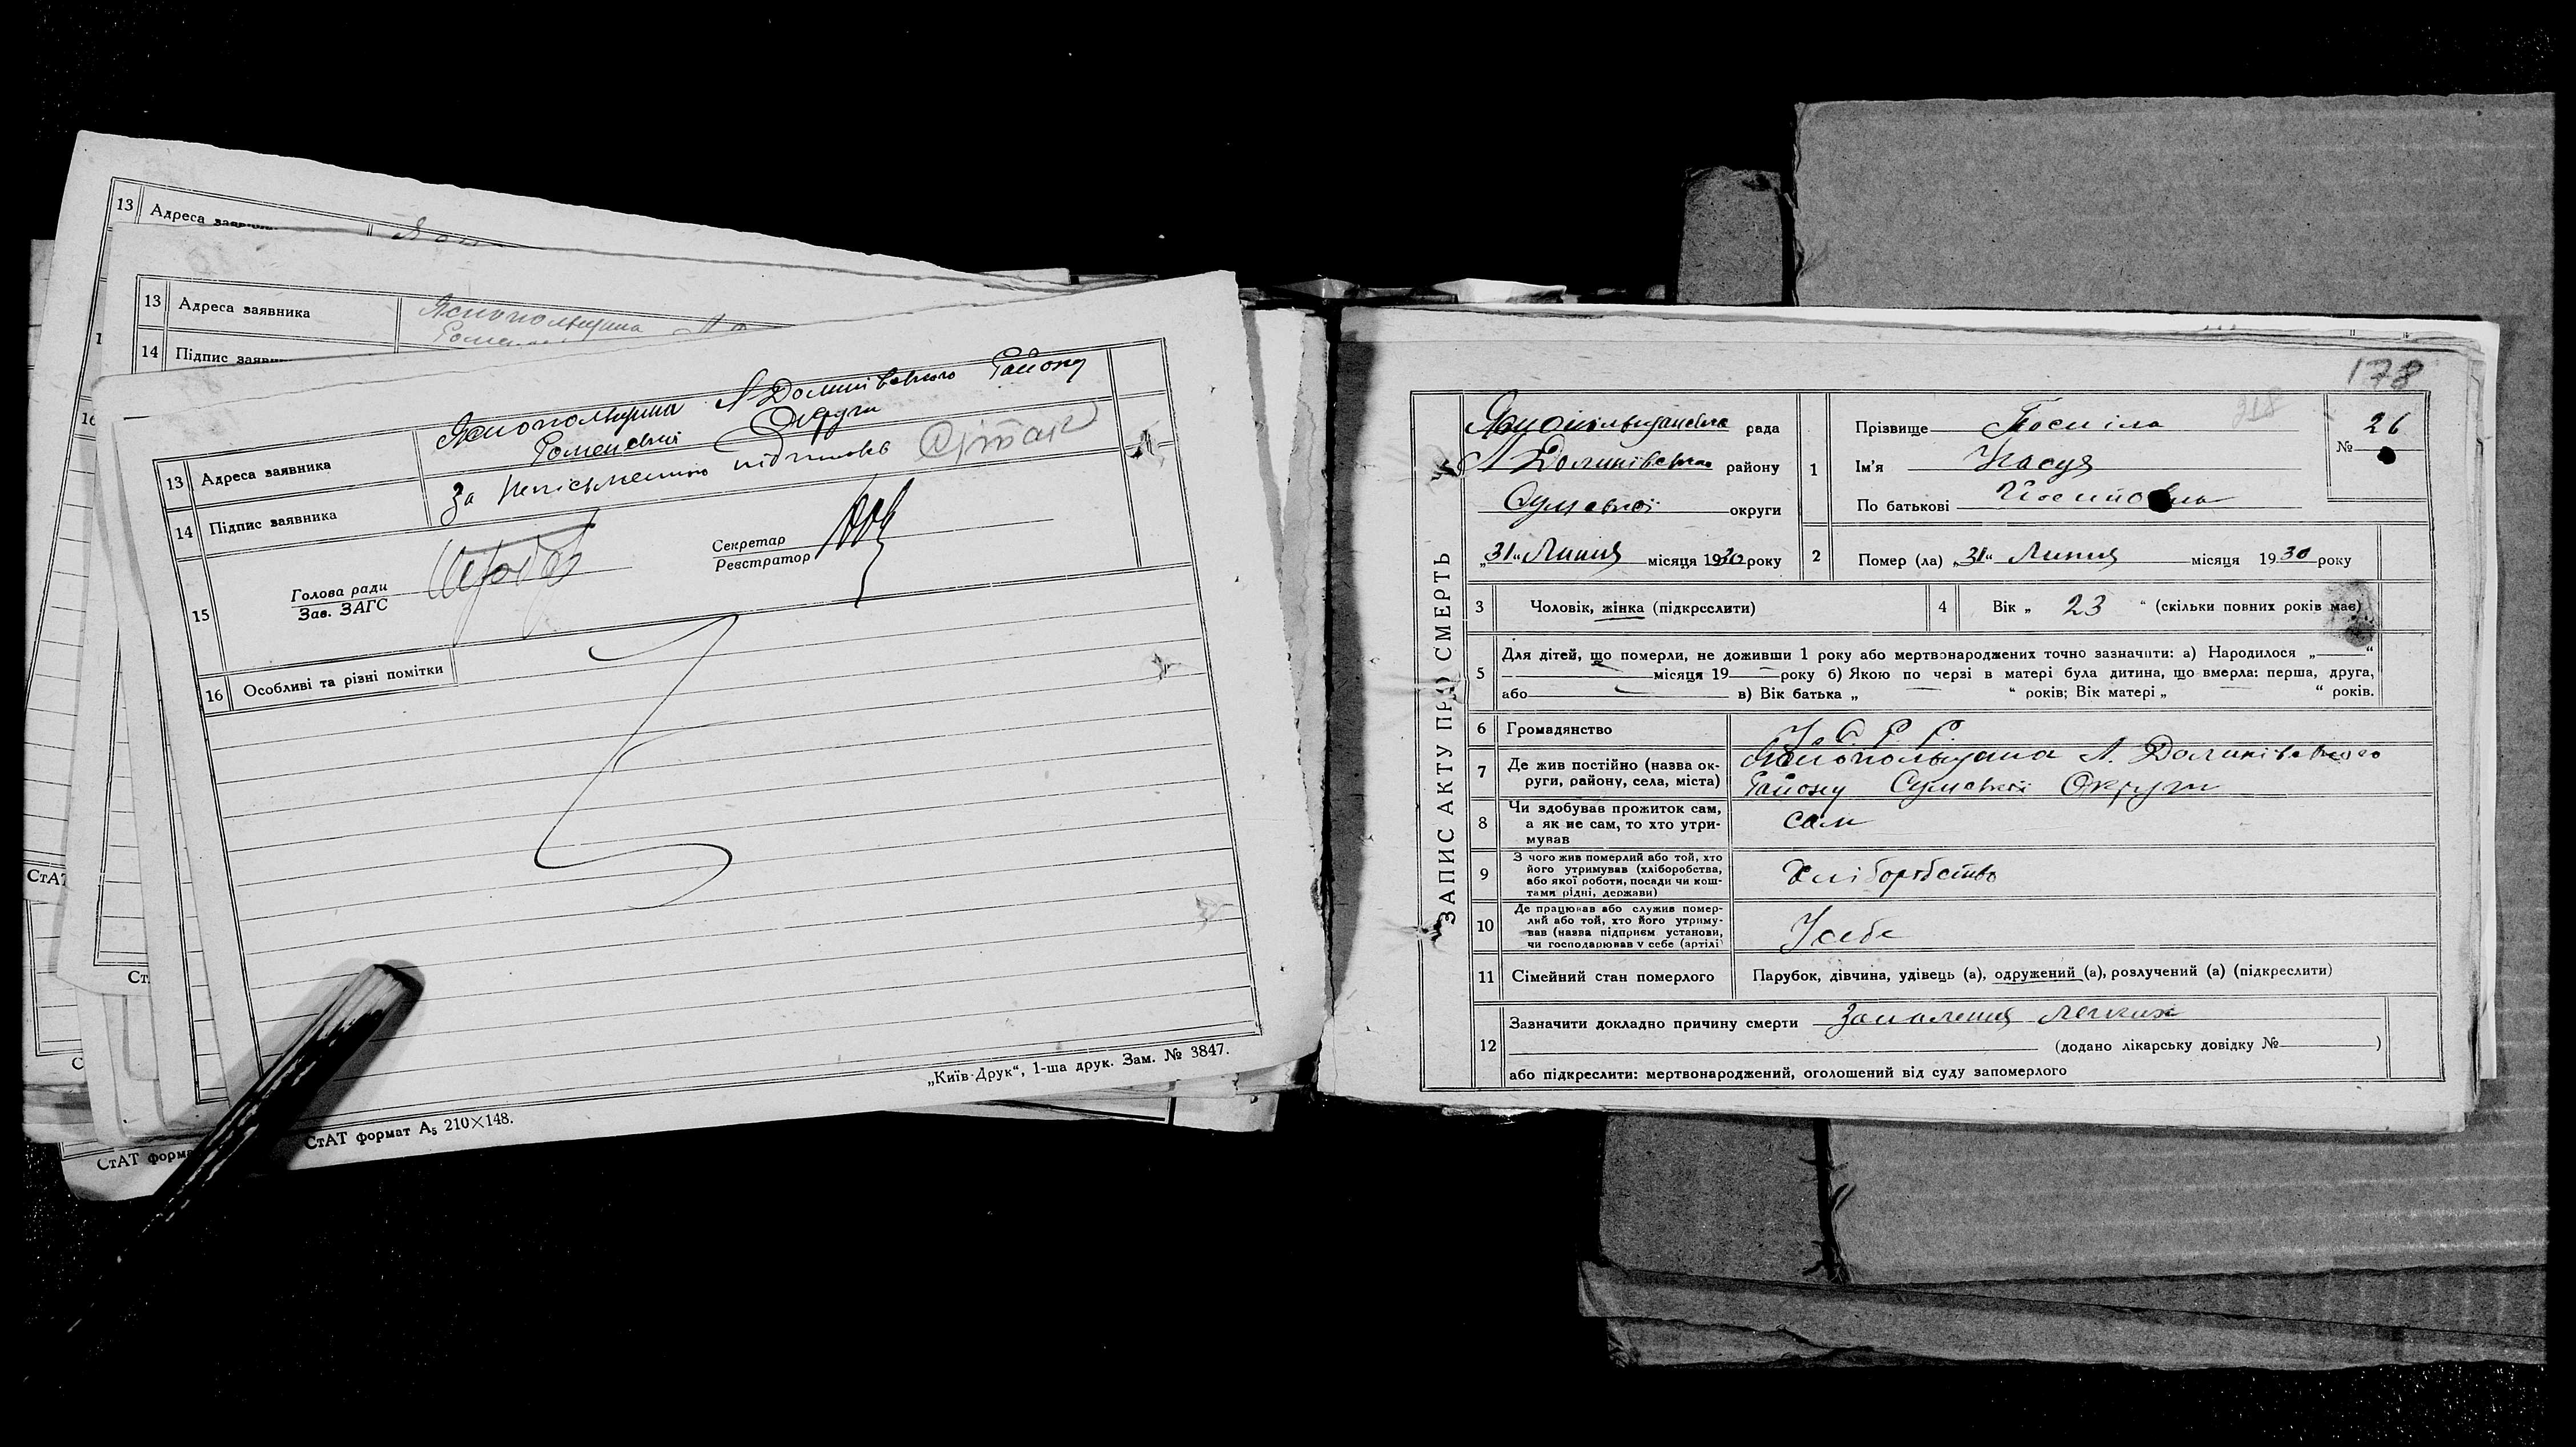 13 Адреса заявника
13 Адреса заявника Яснопольщина
14 Підпис заявн
13 Адреса заявника Яснопольщина Л Долинівського Району
Роменської Округи
14 Підпис заявника За неписьменного підписався
15 Голова ради
Зав. ЗАГС
Секретар
Реєстратор
16 Особливі та різні помітки
„Київ-Друк“, 1-ша друк. Зам. № 3847.
СтАТ формат А5 210×148.
СтАТ форма
178
218
ЗАПИС АКТУ ПРО СМЕРТЬ
Яснопільщанська рада
Л Долинівського району
Сумської округи
„31“ Липня місяця 1930 року
1 Прізвище Посміла
Ім'я Настя
По батькові Йосиповна
№ 26
2 Помер (ла) „31“ Липня місяця 1930 року
3 Чоловік, жінка (підкреслити)
4 Вік „ 23 “ (скільки повних років має)
5 Для дітей, що померли, не доживши 1 року або мертвонароджених точно зазначити: а) Народилося „ “
місяця 19 року б) Якою по черзі в матері була дитина, що вмерла: перша, друга,
або в) Вік батька „ “ років; Вік матері „ “ років.
6 Громадянство У. С. Р. Р.
7 Де жив постійно (назва округи, району, села, міста) Яснопольщана Л. Долинівського
Району Сумської Округи
8 Чи здобував прожиток сам,
а як не сам, то хто утри-
мував
сам
9 З чого жив померлий або той, хто
його утримував (хліборобства,
або якої роботи, посади чи кош-
тами рідні, держави)
Хліборобство
10 Де працював або служив помер-
лий або той, хто його утриму-
вав (назва підприєм установи,
чи господарював у себе (артілі)
У себе
11 Сімейний стан померлого Парубок, дівчина, удівець (а), одружений (а), розлучений (а) (підкреслити)
12 Зазначити докладно причину смерти Запалення легких
(додано лікарську довідку № )
або підкреслити: мертвонароджений, оголошений від суду запомерлого